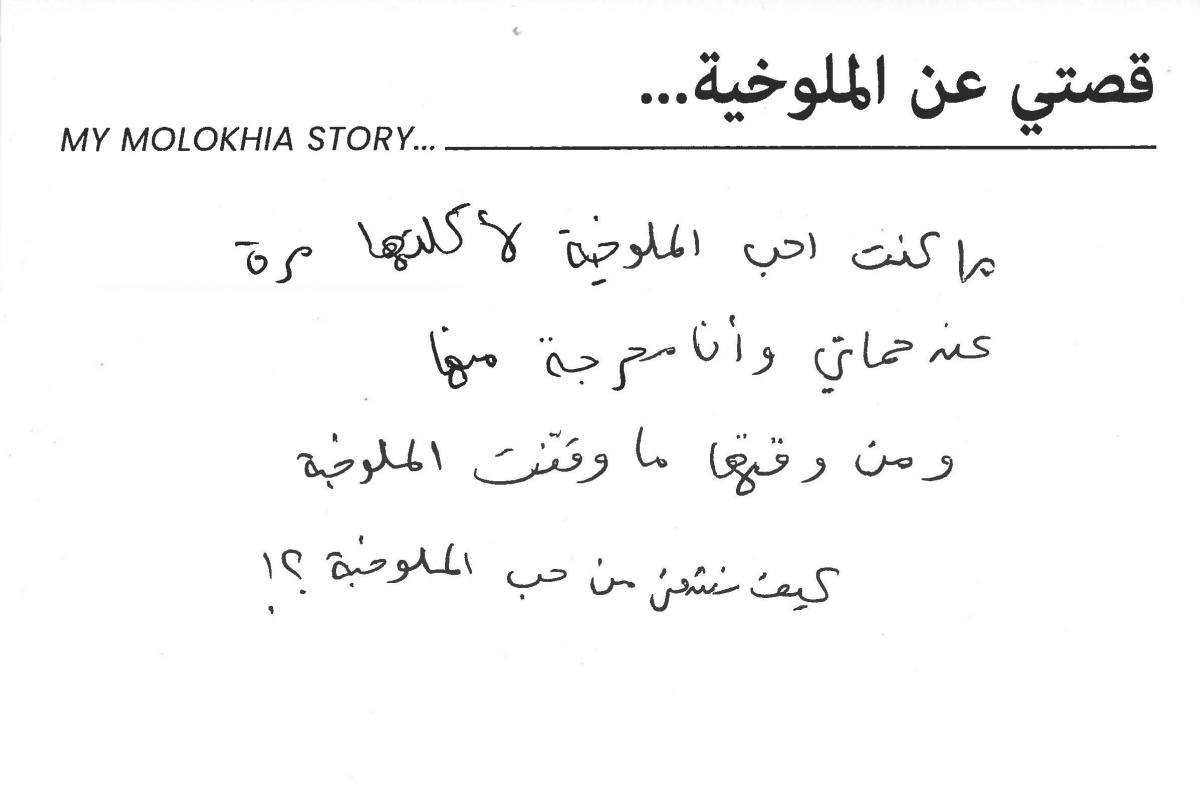 قصتي عن الملوخية...
MY MOLOKHIA STORY...
ما كنت احب الملوخية لأكلتها مرة
عند حماتي وأنا محرجة منها
و من وقتها ما وقّفت الملوخية
كيف نشفى من حب الملوخية ؟!